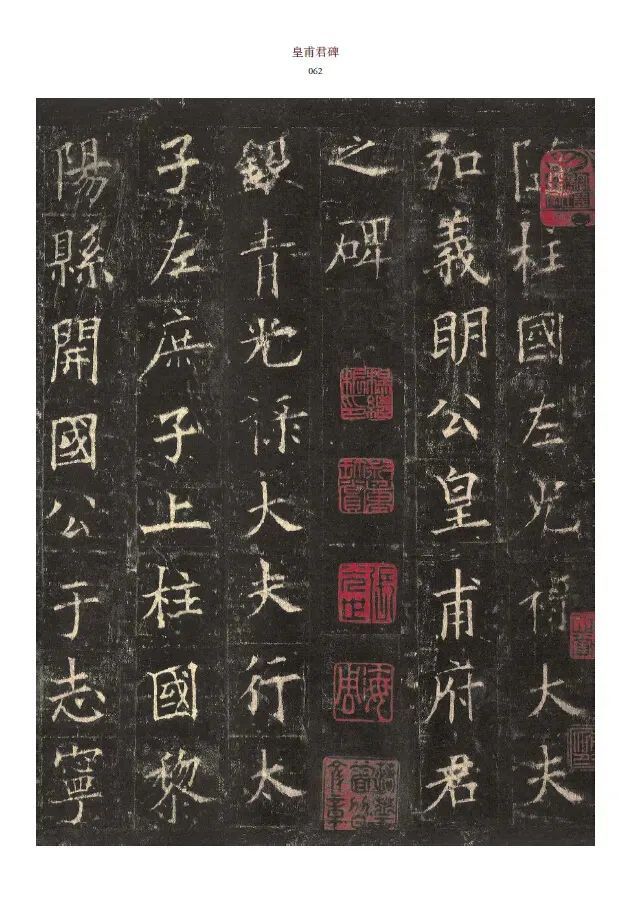 皇甫君碑
062
隨柱國左光祿大夫
弘義明公皇甫府君
之碑
銀青光祿大夫行太
子左庶子上柱國黎
陽縣開國公于志寧